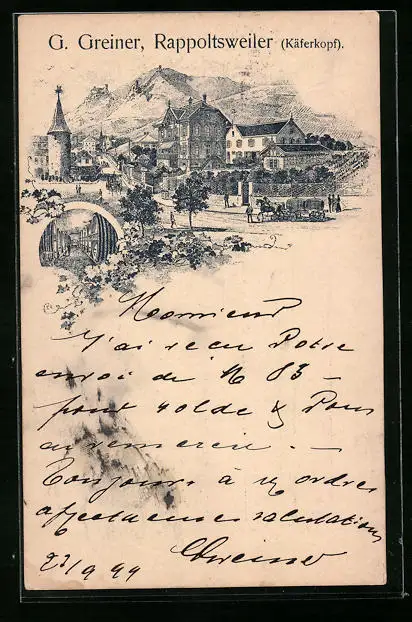 G. Greiner, Rappoltsweiler (Käferkopf).
Monsieur
J'ai reçu Votre
envoi de M 83 –
pour solde & Vous
en remercie. –
Toujours à vos ordres
affectueuses salutations
GGreiner
27/9 99